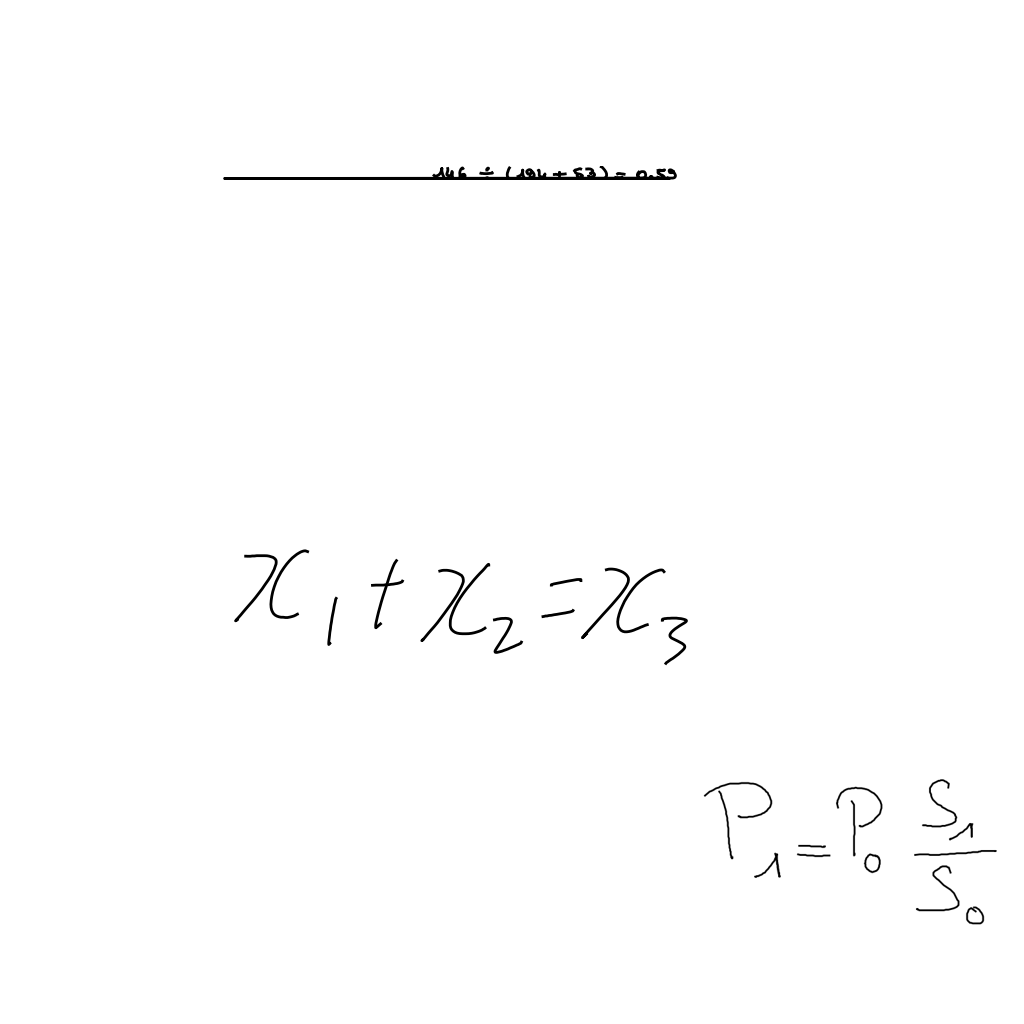 146 ÷ (194 + 53) = 0.59
x₁ + x₂ = x₃
P₁ = P₀ S₁/S₀